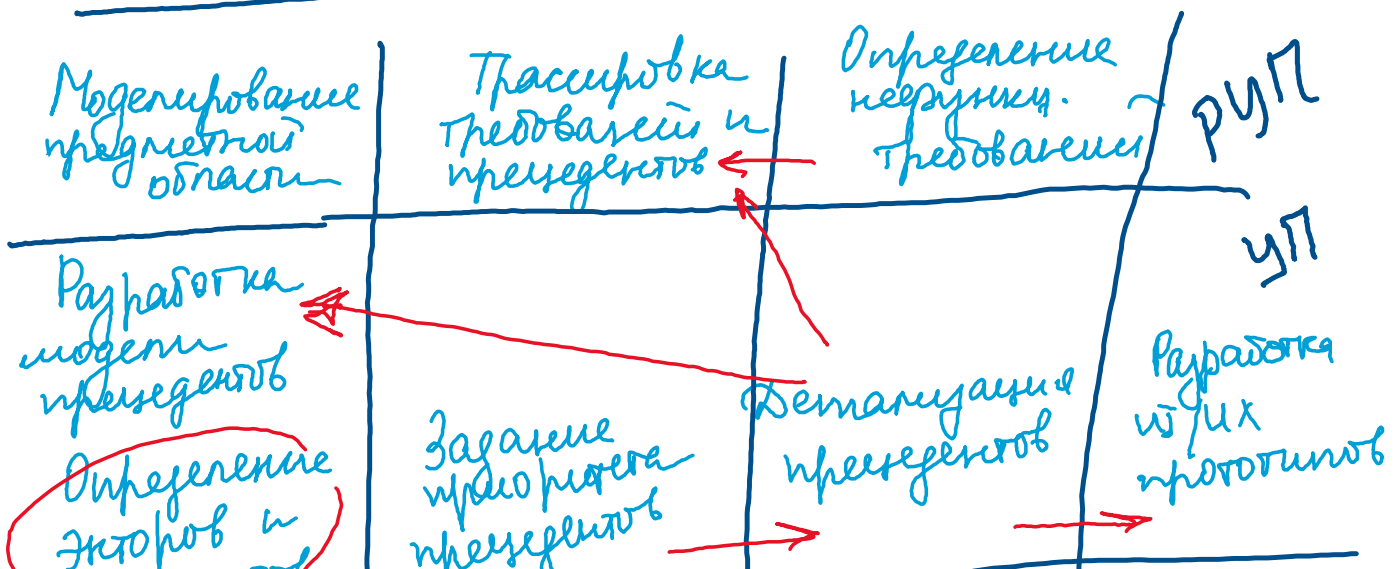 Моделирование
предметной
области
Трассировка
требований и
прецедентов
Определение
нефункц.
требований
РУП
Разработка
модели
прецедентов
Определение
экторов и
Задание
приоритета
прецедентов
Детализация
прецедентов
УП
Разработка
прототипов